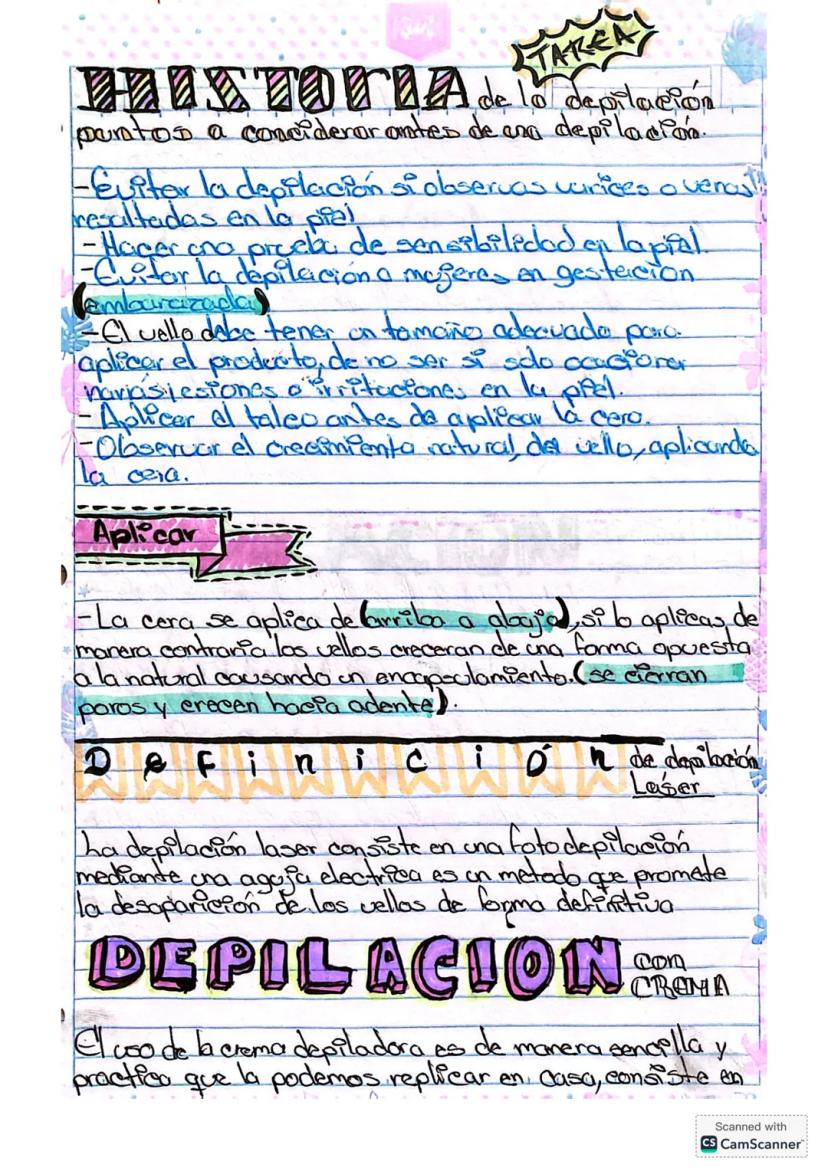 TAREA
HISTORIA de la depilación
puntos a conciderar antes de una depilación.
-Evitar la depilación si observas varices o venas
resaltadas en la piel
-Hacer una prueba de sensibilidad en la piel.
-Evitar la depilación a mujeres en gestación
(embarazada)
-El vello debe tener un tamaño adecuado para
aplicar el producto, de no ser si solo ocacionar
varias lesiones o irritaciones en la piel.
-Aplicar el talco antes de aplicar la cera.
-Observar el crecimiento natural, del vello, aplicando
la cera.
Aplicar
-La cera se aplica de (arriba a abajo), si lo aplicas de
manera contraria los vellos creceran de una forma opuesta
a la natural causando un encapsulamiento. (se cierran
poros y crecen hacia adente).
Definición de depilación
Laser
La depilación laser consiste en una fotodepilación
mediante una aguja electrica es un metodo que promete
la desaparición de los vellos de forma definitiva
DEPILACION con
CREMA
El uso de la crema depiladora es de manera sencilla y
practica que la podemos replicar en casa, consiste en
Scanned with
CS CamScanner